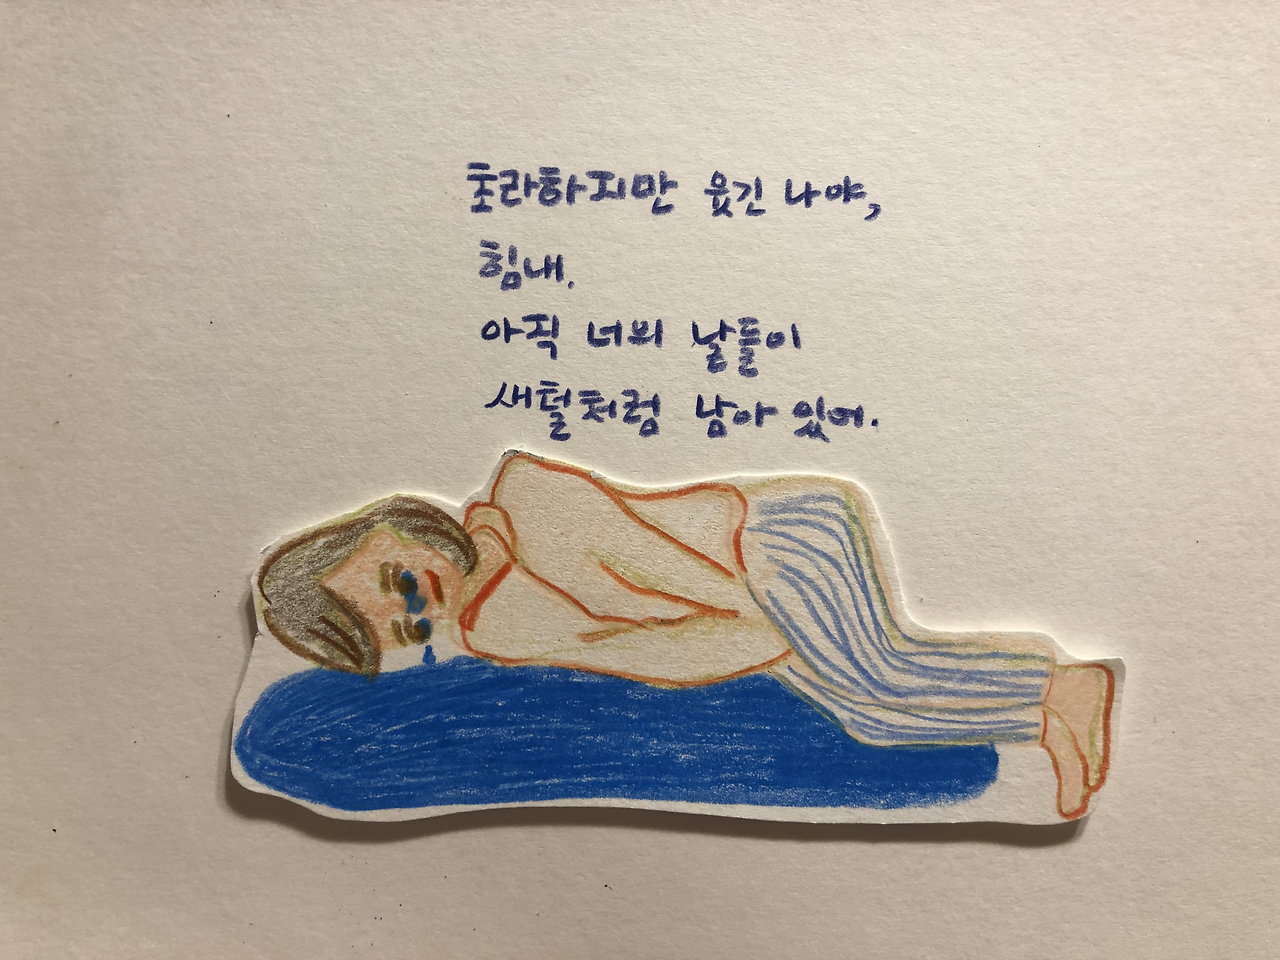 초라하지만 웃긴 나야,
힘내.
아직 너의 날들이
새털처럼 남아 있어.